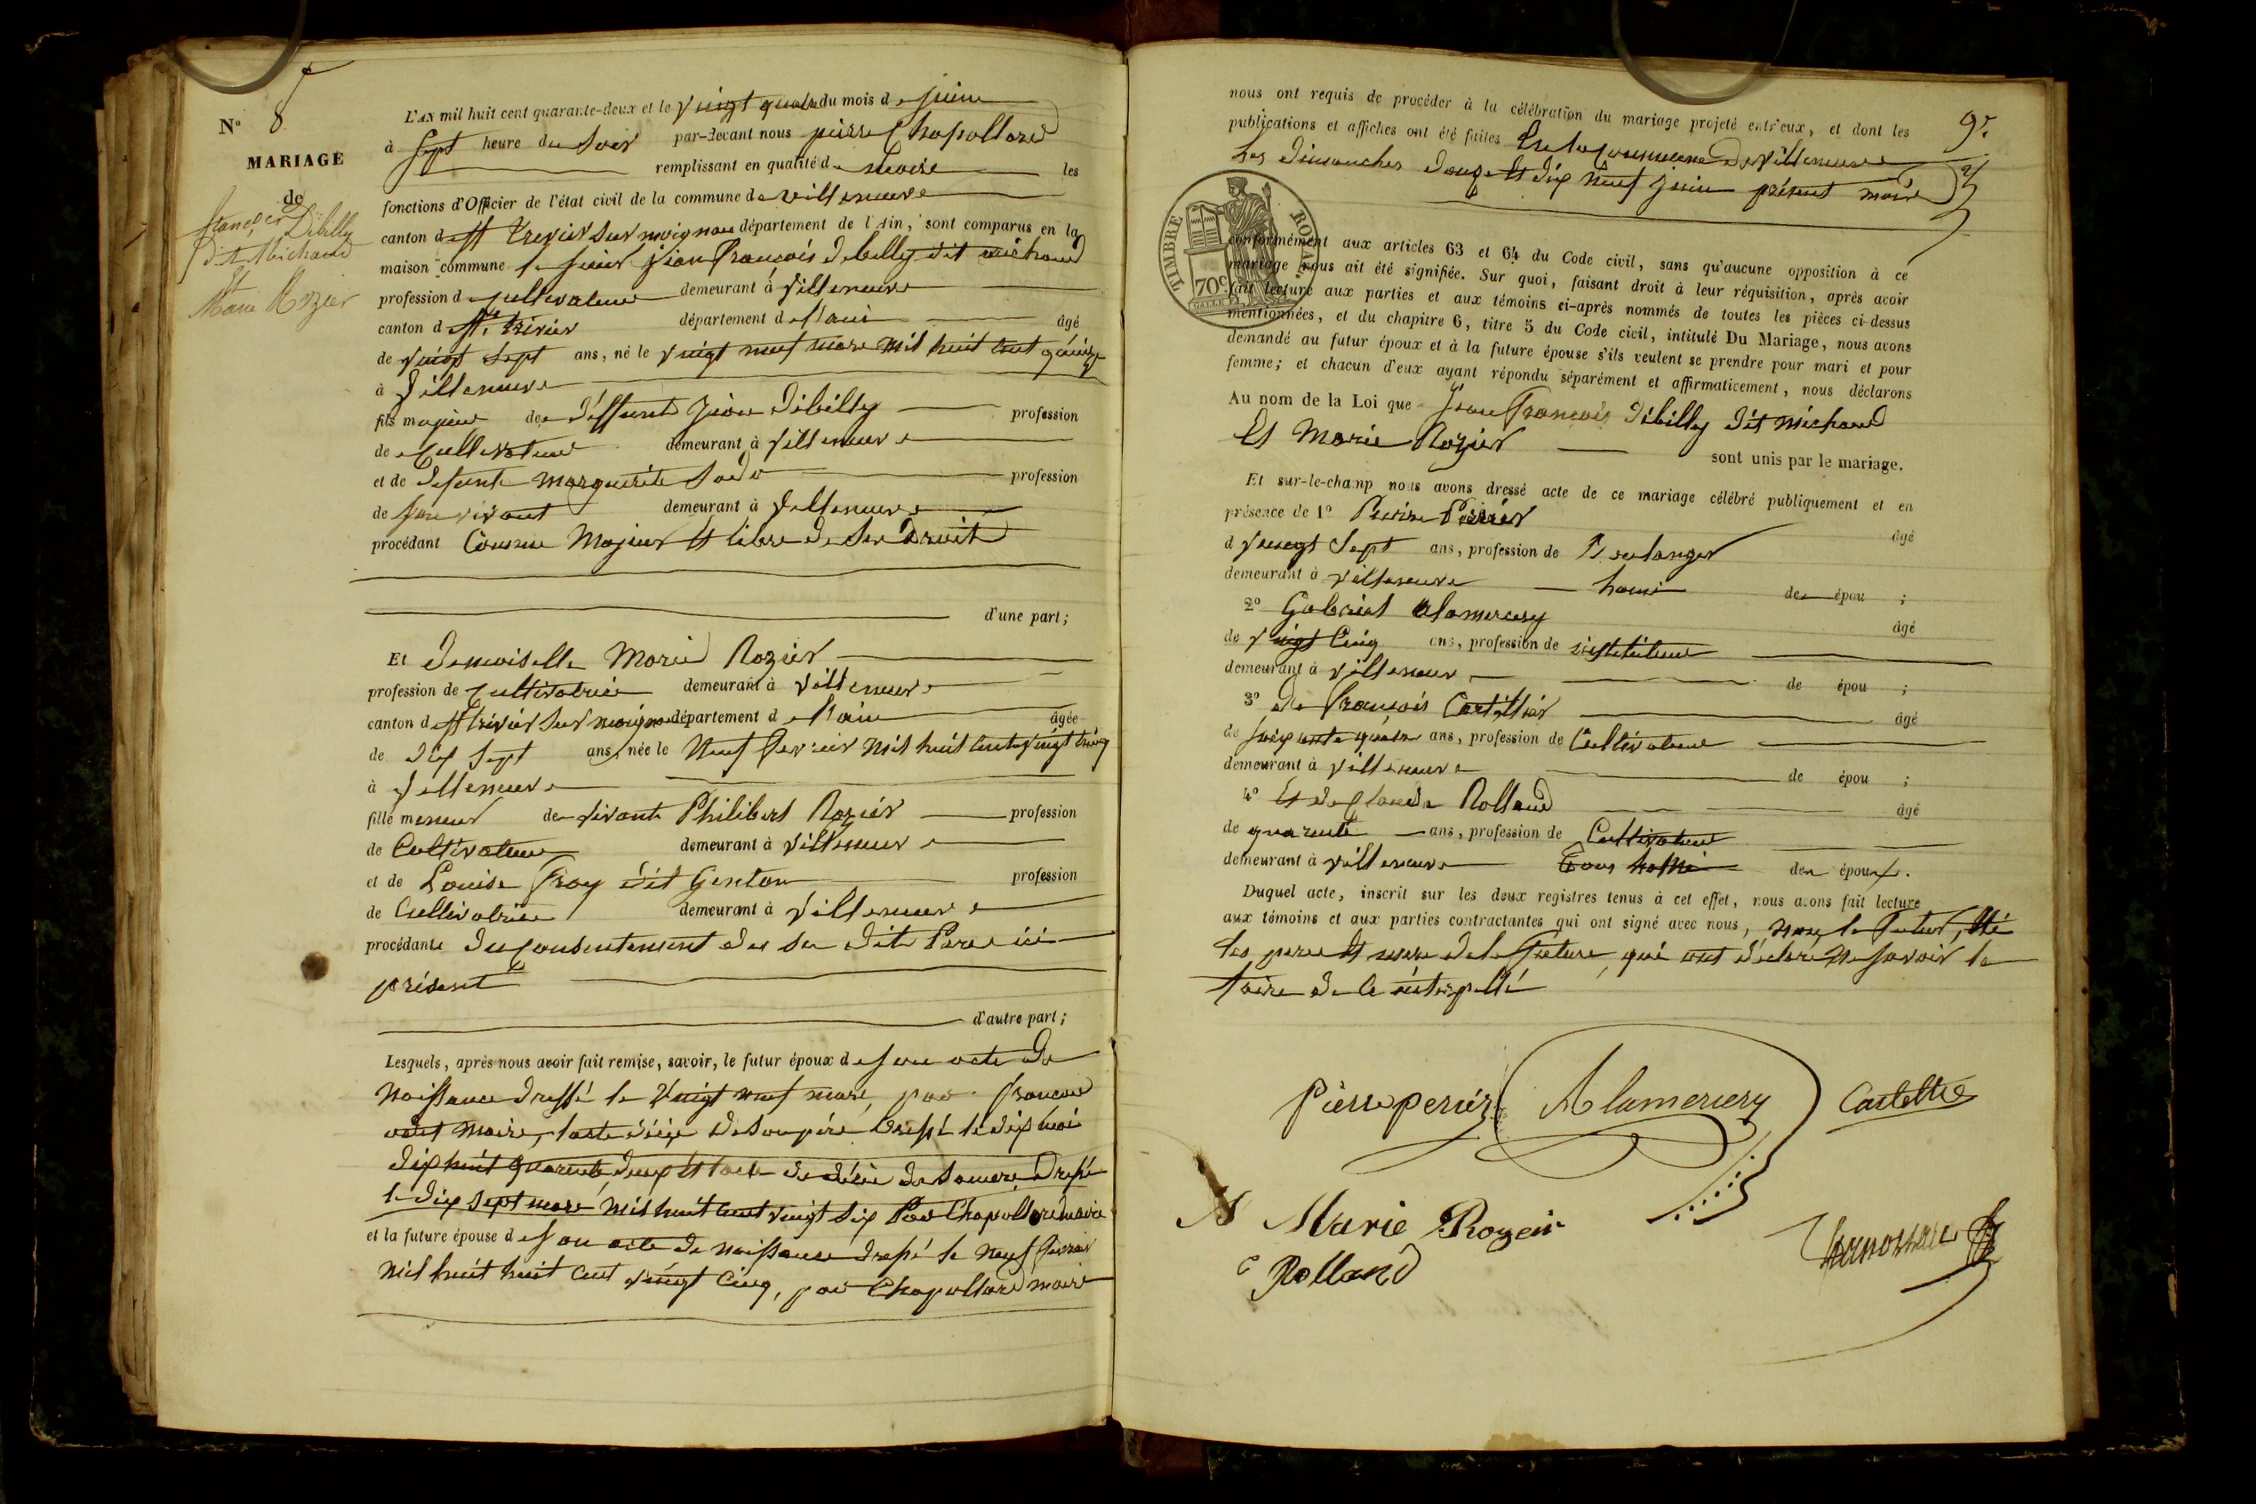 N° 8
MARIAGE
de
françois Debilly
dit Michaud
Et
Marie Rozier
L'AN mil huit cent quarante-deux et le vingt quatre du mois de juin
à Sept heure du Soir par-devant nous pierre Chapollard
remplissant en qualité de maire les
fonctions d'Officier de l'état civil de la commune de villeneuve
canton de St trivier sur moignan département de l'Ain, sont comparus en la
maison commune le sieur jean françois debilly dit michaud
profession de cultivateur demeurant à villeneuve
canton de St trivier département de l'ain âgé
de vingt sept ans, né le vingt neuf mars mil huit cent quinze
à villeneuve
fils majeur de déffunt jean débilly profession
de cultivateur demeurant à villeneuve
et de defunte marguerite profession
de son vivant demeurant à villeneuve
procédant comme Majeur et libre de ses Droits
d'une part;
Et demoiselle Marie Rozier
profession de cultivatrice demeurant à villeneuve
canton de St trivier sur moignan département de l'ain âgée
de dix sept ans, née le neuf fevrier mil huit cent vingt cinq
à villeneuve
fille mineur de vivant Philibert Rozier profession
de Cultivateur demeurant à villeneuve
et de Louise froy dit Genton profession
de Cultivatrice demeurant à villeneuve
procédante du consentement de ses dits Pere ici
présent
d'autre part;
Lesquels, après nous avoir fait remise, savoir, le futur époux de son acte de
naissance dressé le vingt neuf mars, par
maire, l'acte décés de son père Dressé le dix
dix huit quarante deux et l'acte de décès de sa mere Dressé
le dix sept mars mil huit cent vingt six Par Chapollard maire
et la future épouse de son acte de naissance dressé le neuf fevrier
mil huit huit cent vingt cinq, par Chapollard maire
nous ont requis de procéder à la célébration du mariage projeté entr'eux, et dont les
publications et affiches ont été faites En la commune de villeneuve
les dimanches douze et dix neuf juin présent mois
9e
TIMBRE ROYAL
70c
conformément aux articles 63 et 64 du Code civil, sans qu'aucune opposition à ce
mariage nous ait été signifiée. Sur quoi, faisant droit à leur réquisition, après avoir
fait lecture aux parties et aux témoins ci-après nommés de toutes les pièces ci-dessus
mentionnées, et du chapitre 6, titre 5 du Code civil, intitulé Du Mariage, nous avons
demandé au futur époux et à la future épouse s'ils veulent se prendre pour mari et pour
femme; et chacun d'eux ayant répondu séparément et affirmativement, nous déclarons
Au nom de la Loi que Jean François débilly dit michaud
Et Marie Rozier
sont unis par le mariage.
Et sur-le-champ nous avons dressé acte de ce mariage célébré publiquement et en
présence de 1° Pierre Perrier âgé
d vingt sept ans, profession de Boulanger
demeurant à villeneuve de épou ;
2° Gabriel alamercery âgé
de vingt cinq ans, profession de instituteur
demeurant à villeneuve de épou ;
3° de françois Cartellier âgé
de soixante quatre ans, profession de Cultivateur
demeurant à villeneuve de épou ;
4° Et de Claude Rolland âgé
de quarente ans, profession de Cultivateur
demeurant à villeneuve Tous des époux.
Duquel acte, inscrit sur les deux registres tenus à cet effet, nous avons fait lecture
aux témoins et aux parties contractantes qui ont signé avec nous, non le futur, Ni
les pere et mere de la future, qui ont déclaré ne savoir le
faire de ce interpellé
Pierre perrier Alamercery
Marie Rozeir
C Rolland